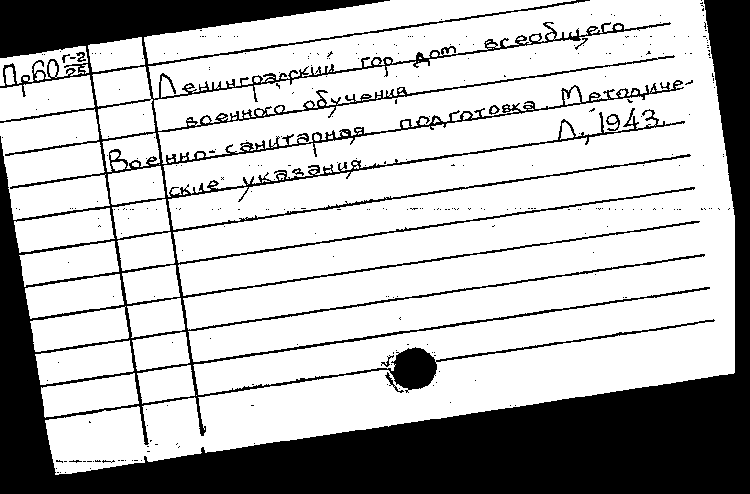 Пр60 Г-2/25
Ленинградский гор дом всеобщего
военного обучения
Военно-санитарная подготовка. Методиче-
ские указания... Л., 1943.